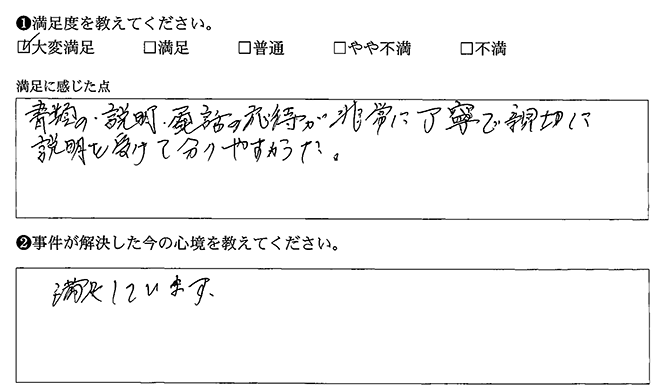 ❶満足度を教えてください。
☑大変満足 □満足 □普通 □やや不満 □不満
満足に感じた点
書類の・説明・電話の応待が非常に丁寧で親切に
説明を受けて分りやすかった。
❷事件が解決した今の心境を教えてください。
満足しています。